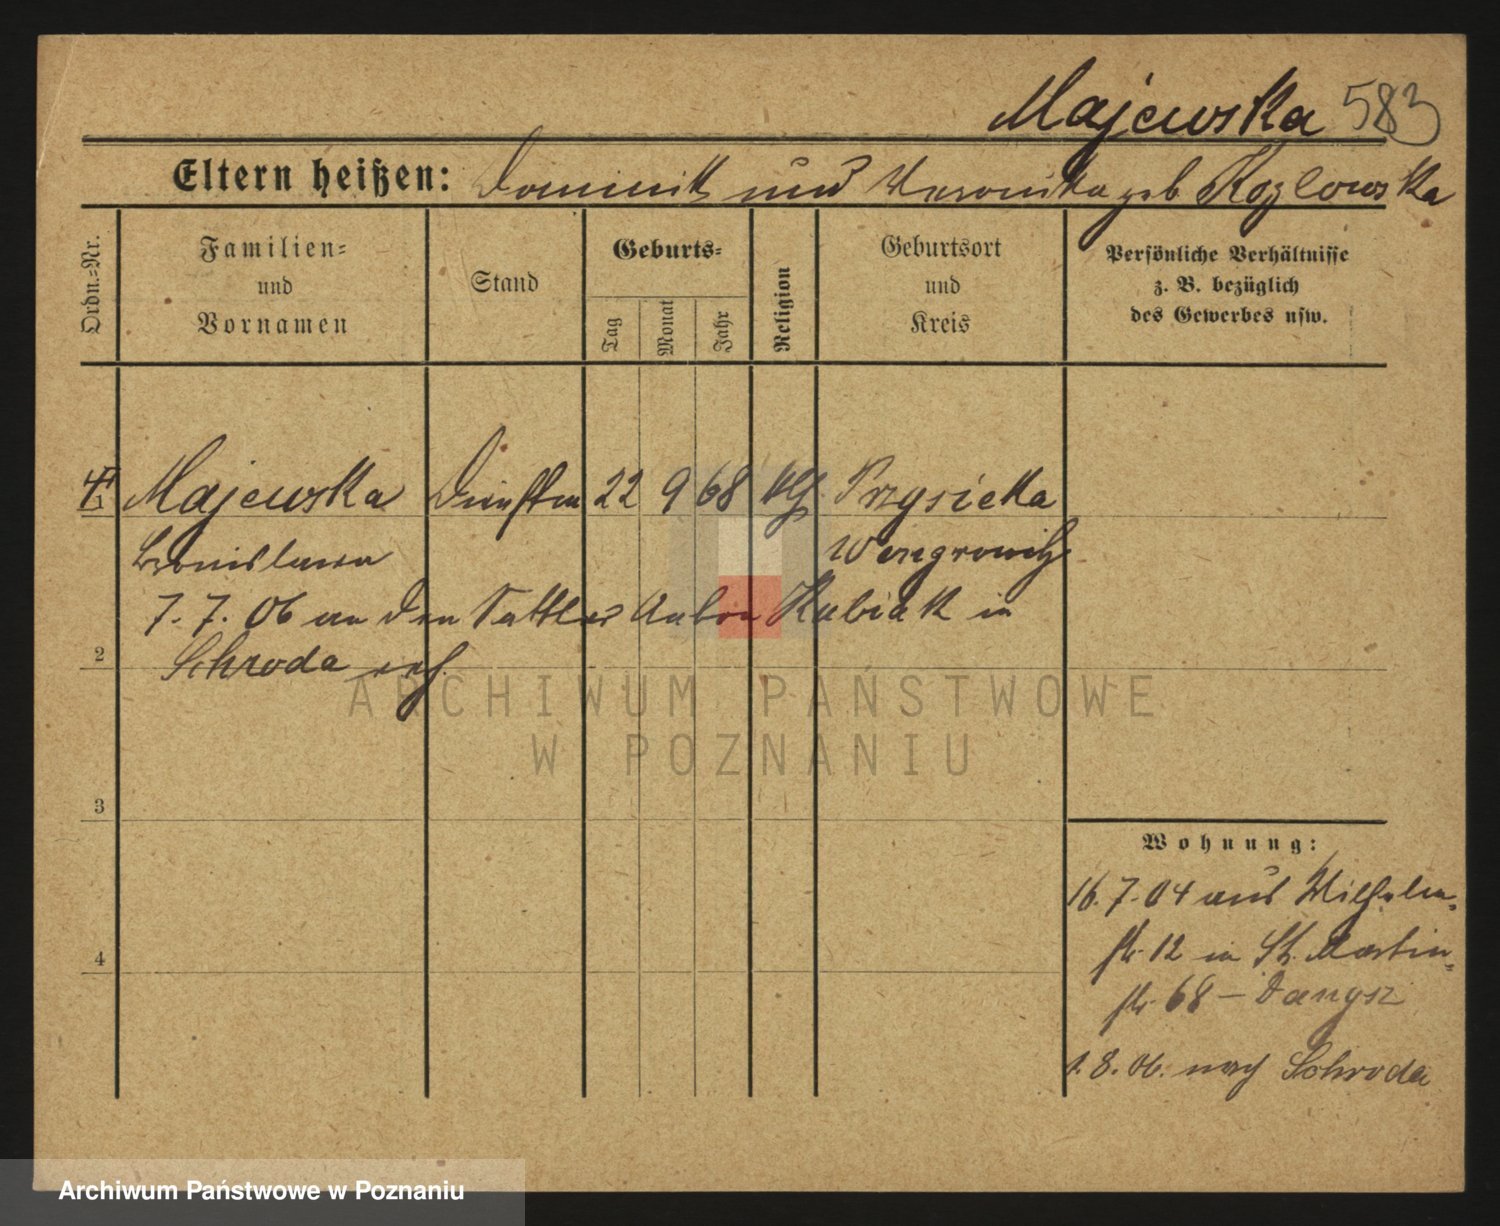 Majewska 583
Eltern heißen: Dominik und Veronika geb Kozlowska
Ordn.=Nr.
Familien=
und
Vornamen
Stand
Geburts=
Tag
Monat
Jahr
Religion
Geburtsort
und
Kreis
Persönliche Verhältnisse
z. B. bezüglich
des Gewerbes usw.
Majewska 22 9 68 kth. Przysieka
Bronislawa Wongrowitz
7. 7. 06 an den Sattler Anton Kubiak in
2
Schroda verh.
ARCHIWUM PAŃSTWOWE
W POZNANIU
3
4
Wohnung:
16. 7. 04 aus Wilhelm=
str. 12 in St. Martin=
str. 68 – Dangsz
1. 8. 06. nach Schroda
Archiwum Państwowe w Poznaniu